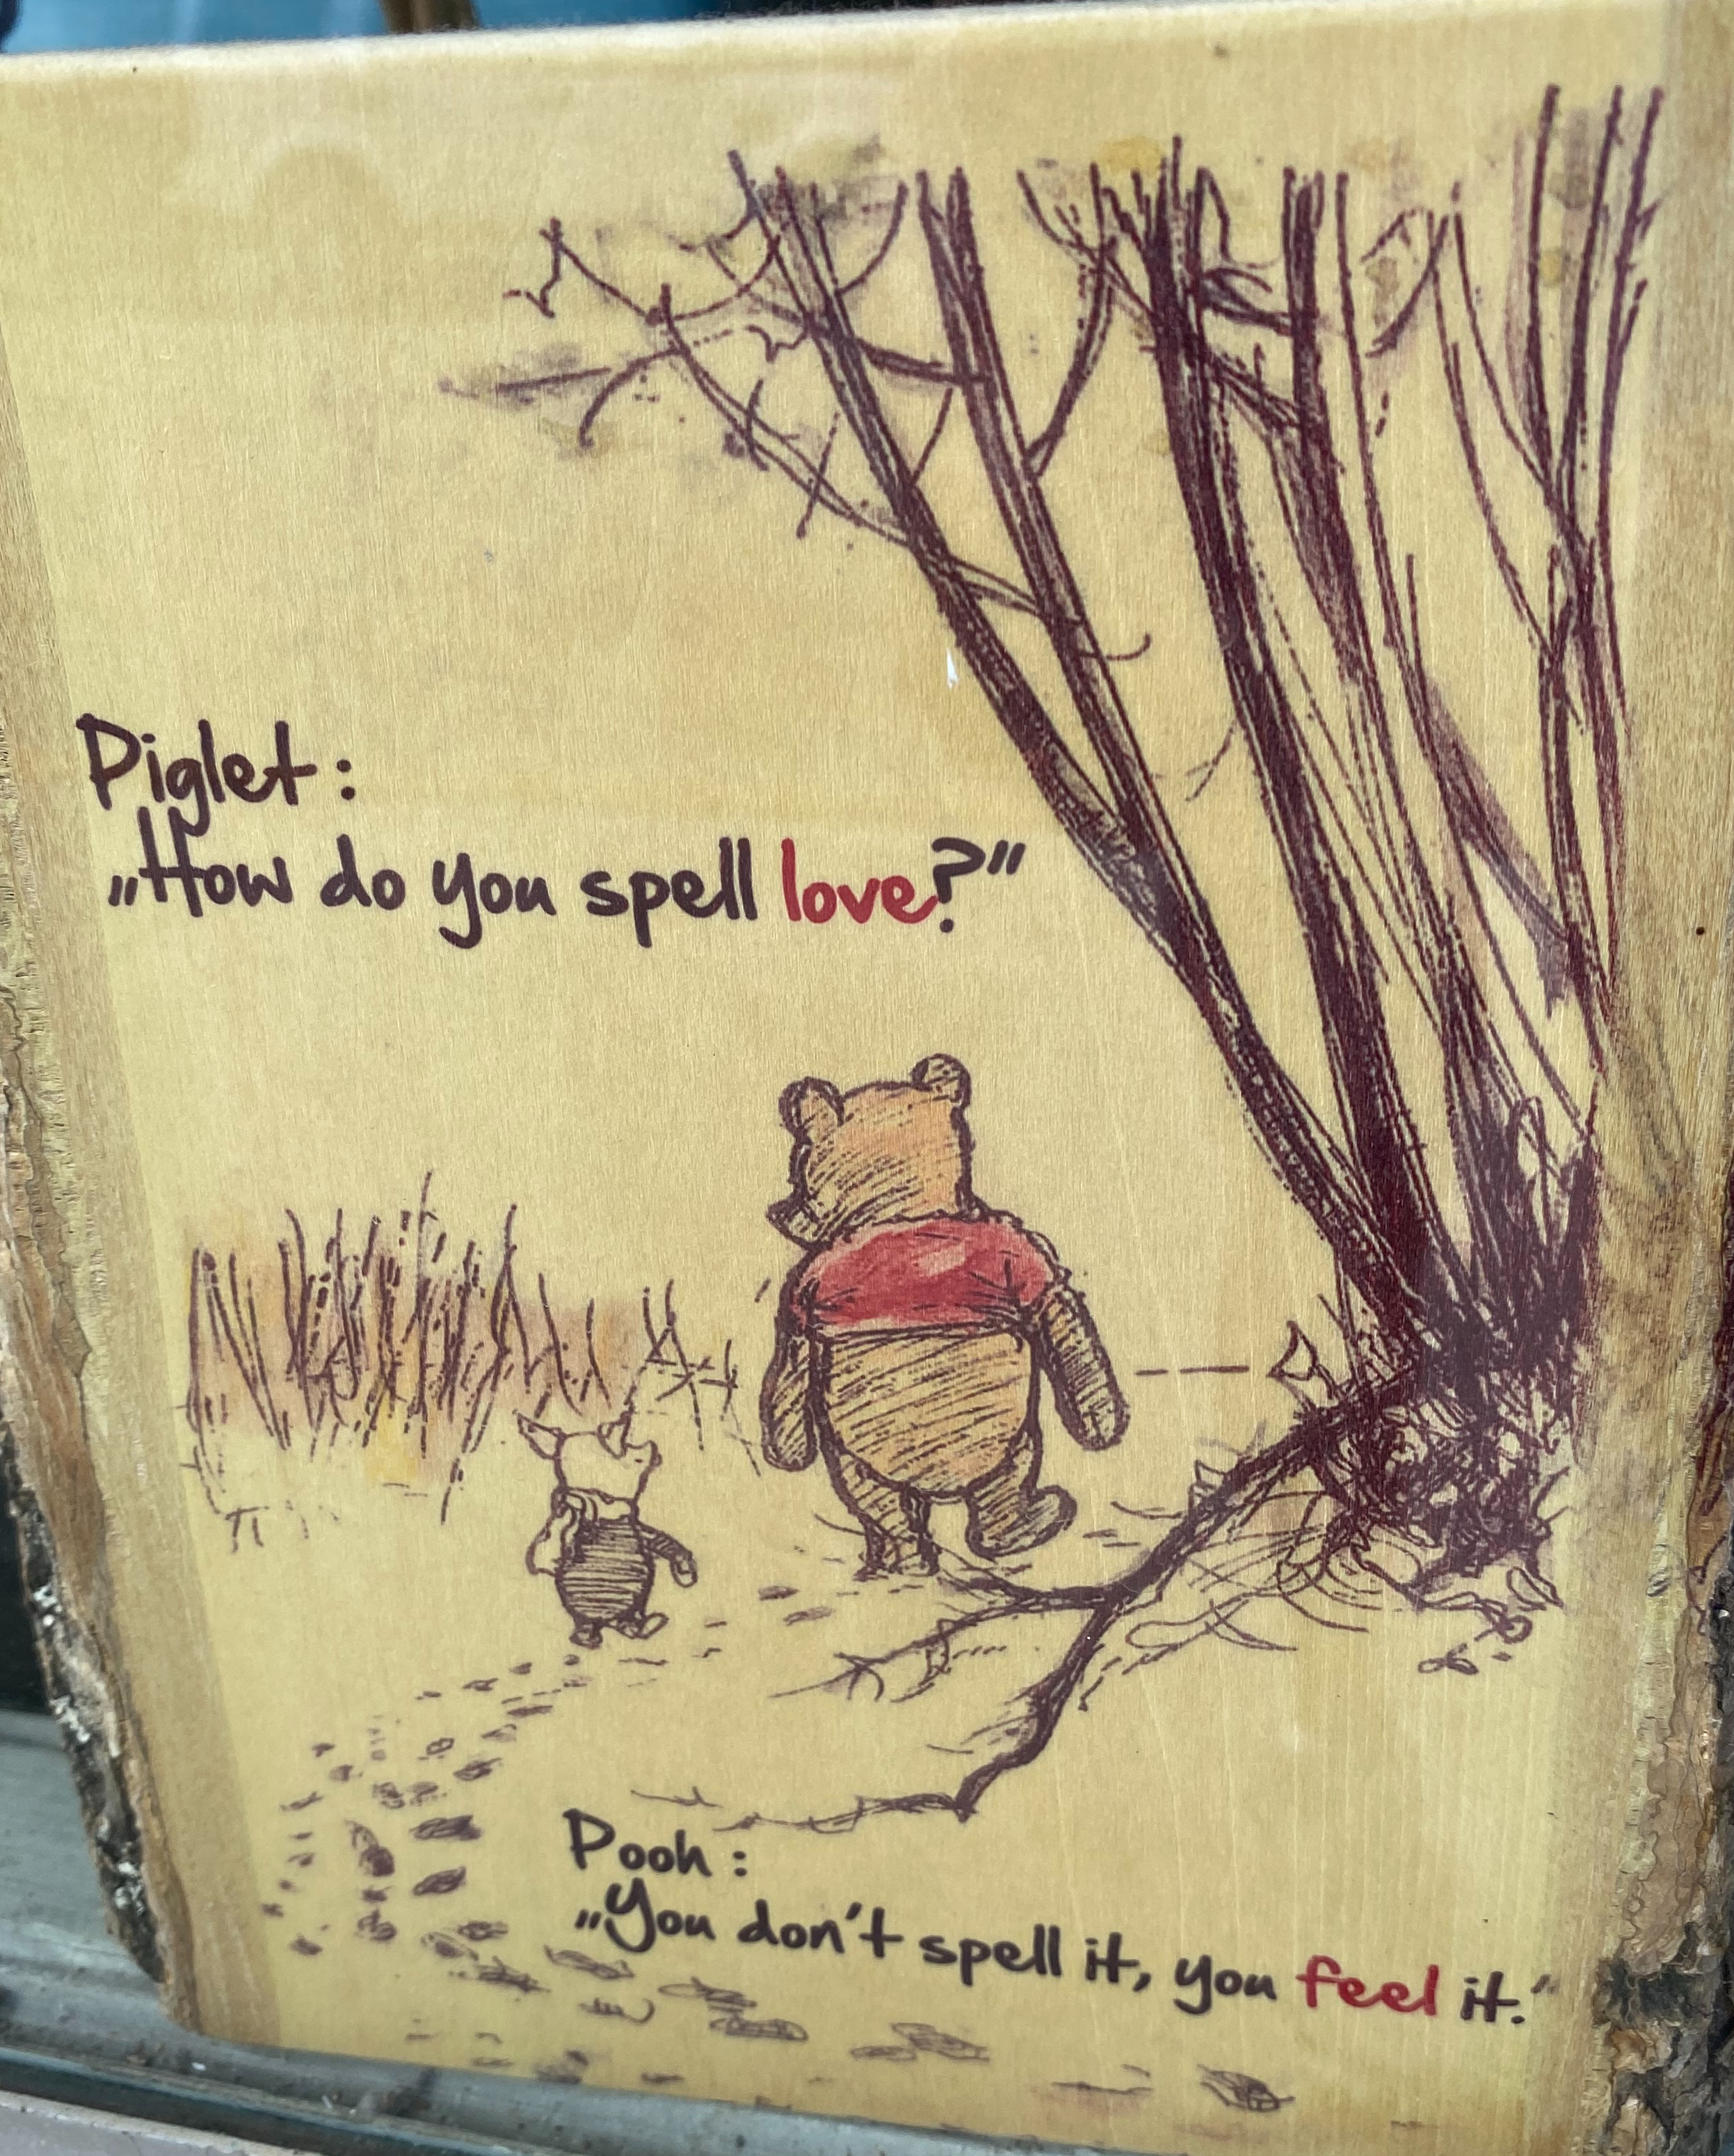 Piglet:
„How do you spell love?"
Pooh:
„You don't spell it, you feel it."